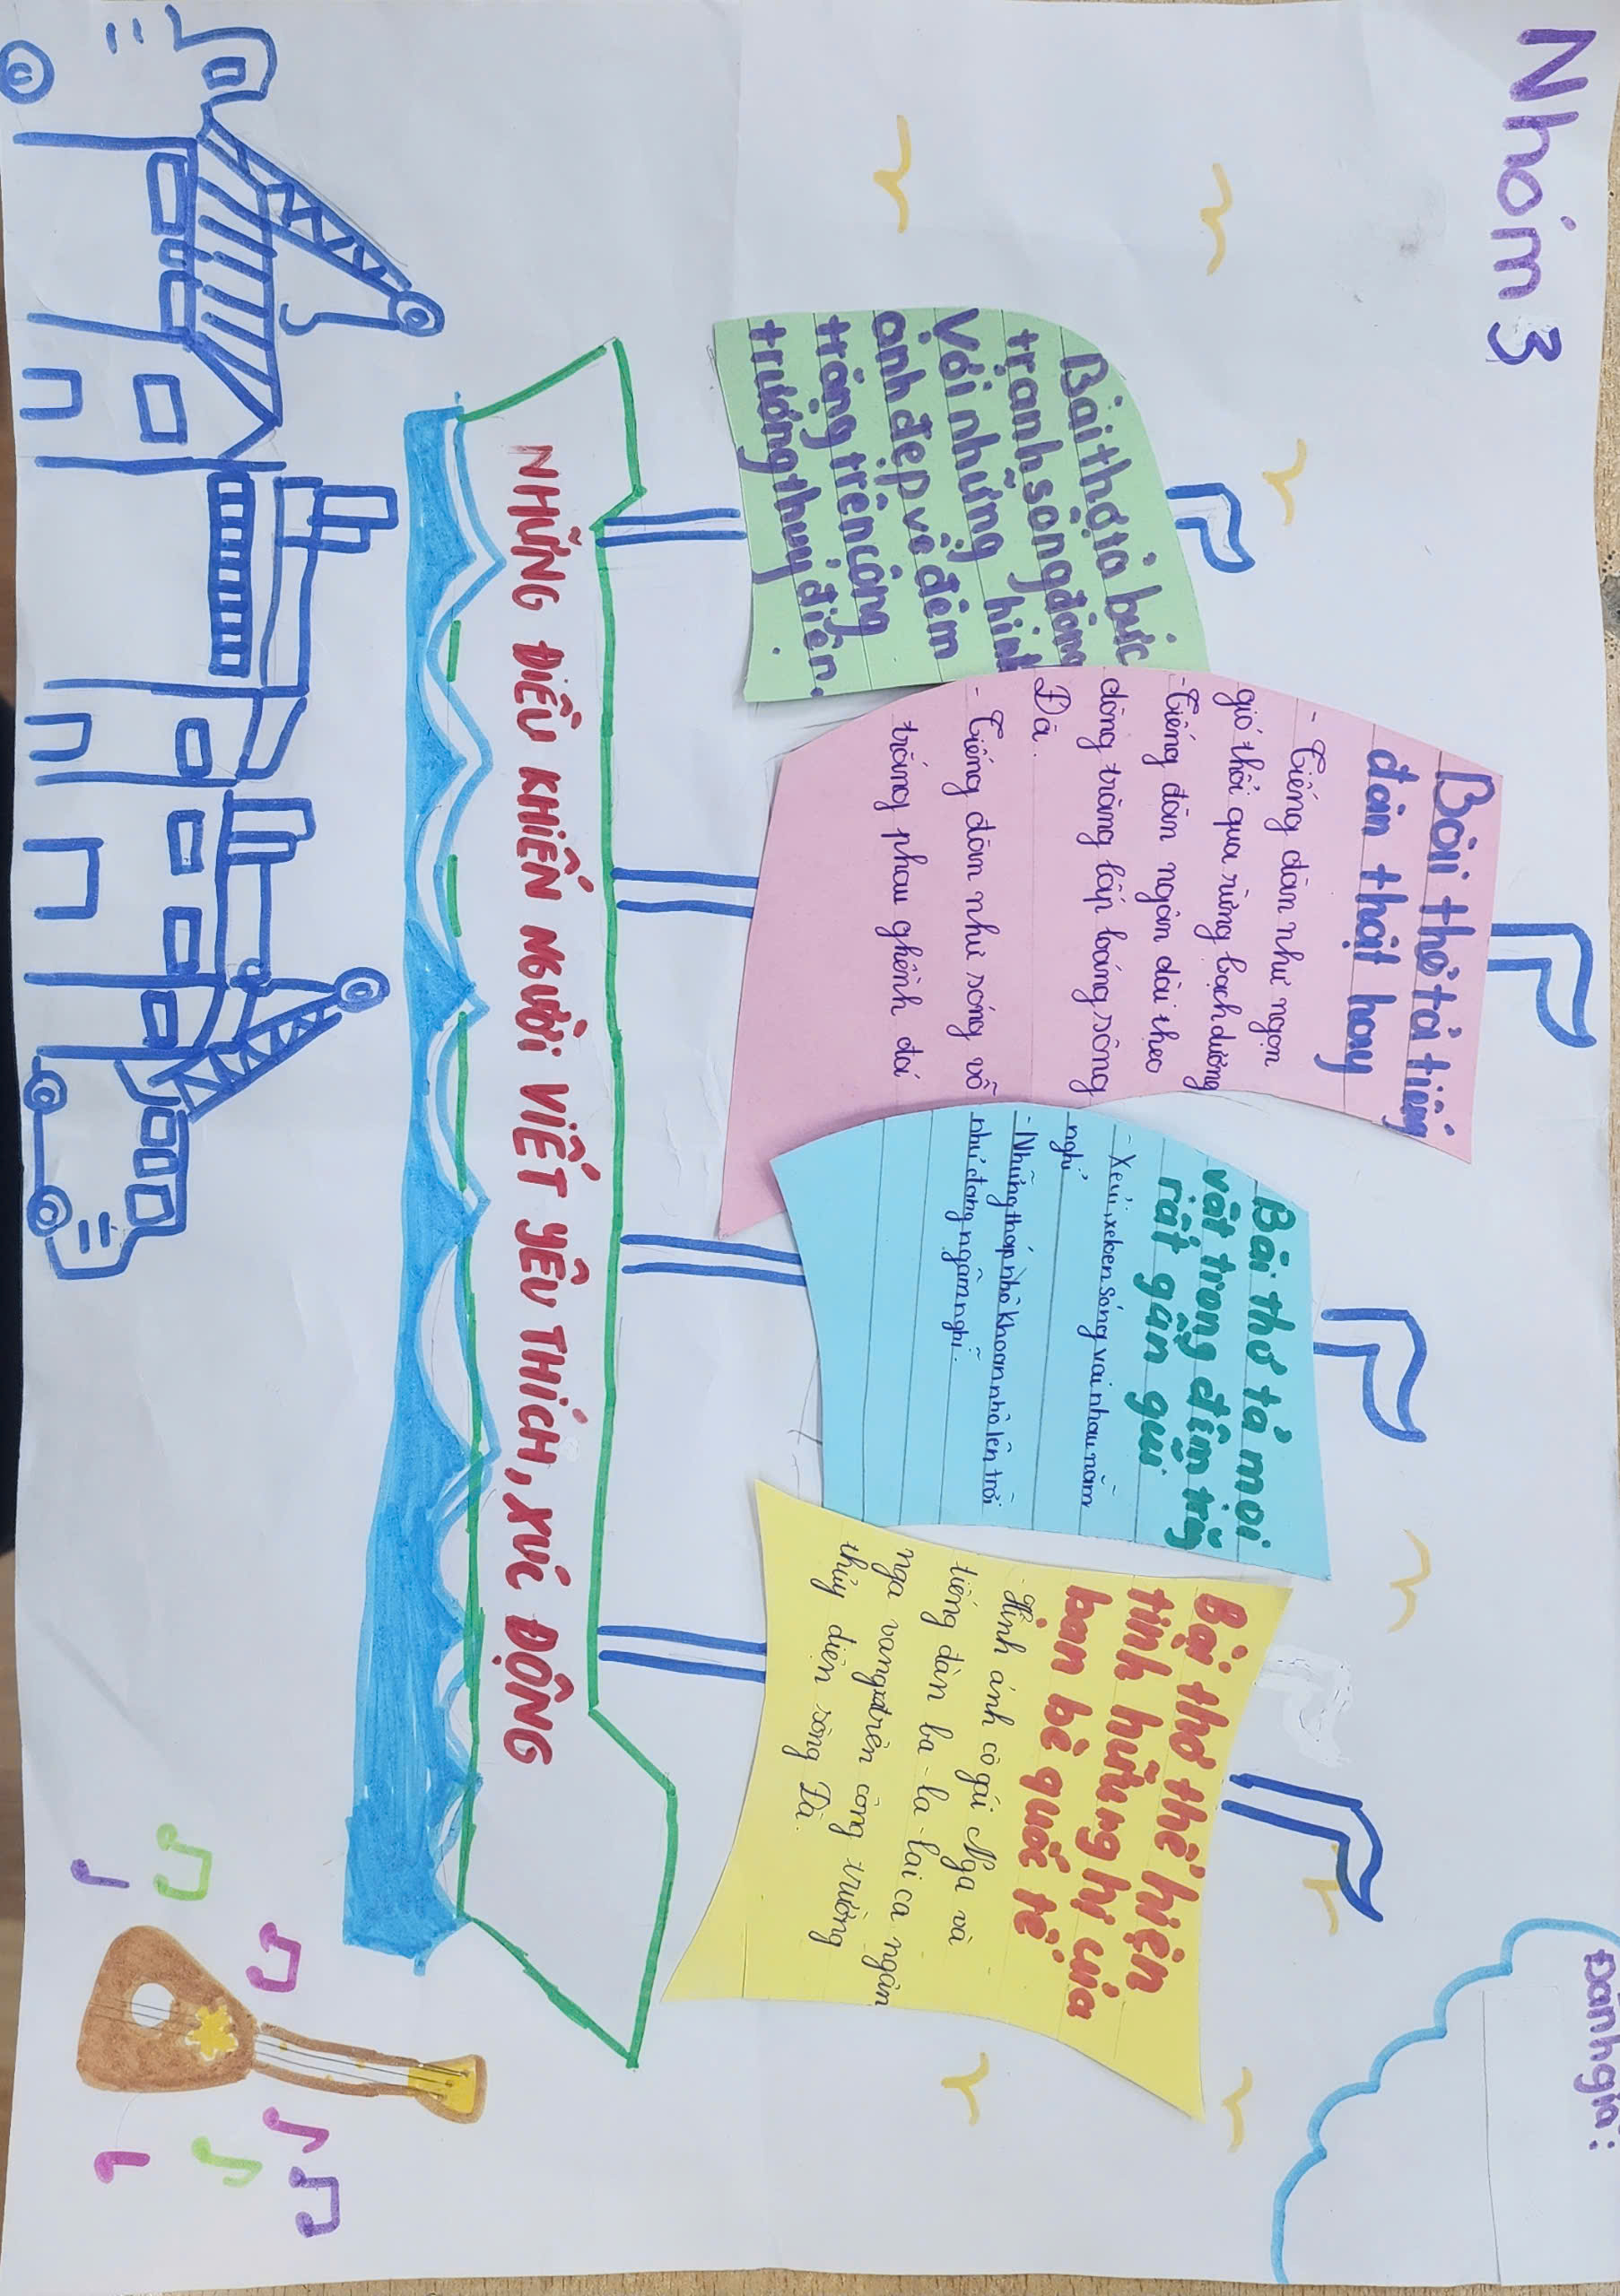 Nhóm 3
Đánh giá:
Bài thơ là bức
tranh sống động
với những hình
ảnh đẹp về đêm
trăng trên công
trường thuỷ điện.
Bài thơ tả tiếng
đàn thật hay
- Tiếng đàn như ngọn
gió thổi qua rừng bạch dương
- Tiếng đàn ngân dài theo
dòng trăng lấp loáng sông
Đà.
- Tiếng đàn như sóng vỗ
trắng phau ghềnh đá
Bài thơ tả mọi
vật trong đêm trăng
rất gần gũi
- Xe ủi, xe ben sóng vai nhau nằm
nghỉ
- Những tháp nhô khoan nhô lên trời
như đang ngẫm nghĩ.
Bài thơ thể hiện
tình hữu nghị của
bạn bè quốc tế
- Hình ảnh cô gái Nga và
tiếng đàn ba-la-lai-ca ngân
nga vang trên công trường
thủy điện sông Đà.
NHỮNG ĐIỀU KHIẾN NGƯỜI VIẾT YÊU THÍCH, XÚC ĐỘNG